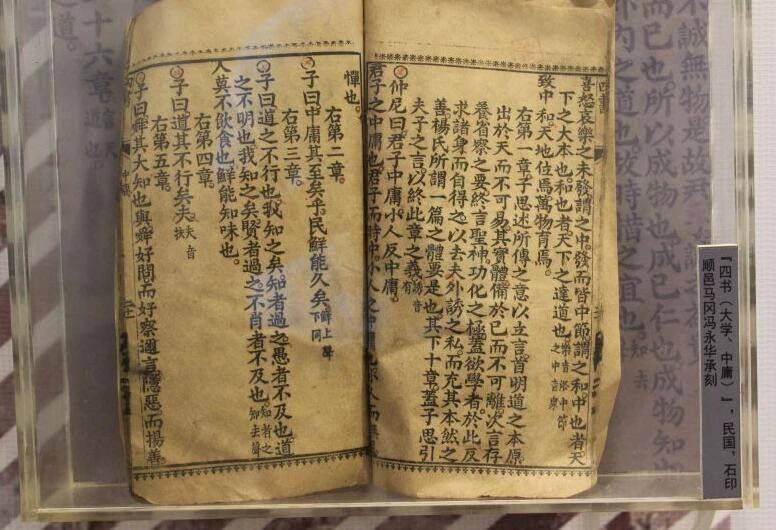 不誠無物是故君
而已也所以成物
成己仁也成物知也
外内之道也故時措之宜也
四書
喜怒哀樂之未發謂之中。發而皆中節。謂之和中也者天
下之大本也。和也者天下之達道也。樂音洛中節之中音衆
致中和天地位焉萬物育焉。
右第一章子思述所傳之意以立言首明道之本原
出於天而不可易其實體備於已而不可離次言存
養省察之要終言聖神功化之極蓋欲學者於此反
求諸身而自得之以去夫外誘之私而充其本然之
善楊氏所謂一篇之體要是也其下十章蓋子思引
夫子之言以終此章之義誘音有
仲尼曰君子中庸。小人反中庸。
君子之中庸也君子而時中。小人之中
憚也。
右第二章。
子曰中庸其至矣乎。民鮮能久矣鮮上聲下同
右第三章。
子曰道之不行也。我知之矣。知者過之愚者不及也。道
之不明也。我知之矣。賢者過之。不肖者不及也知者之知去聲
人莫不飲食也鮮能知味也。
右第四章。
子曰道其不行矣夫夫音扶
右第五章。
子曰舜其大知也與舜好問而好察邇言隱惡而揚善
中庸
十六章
道。
『四书（大学、中庸）』，民国，石印
顺邑马冈冯永华承刻